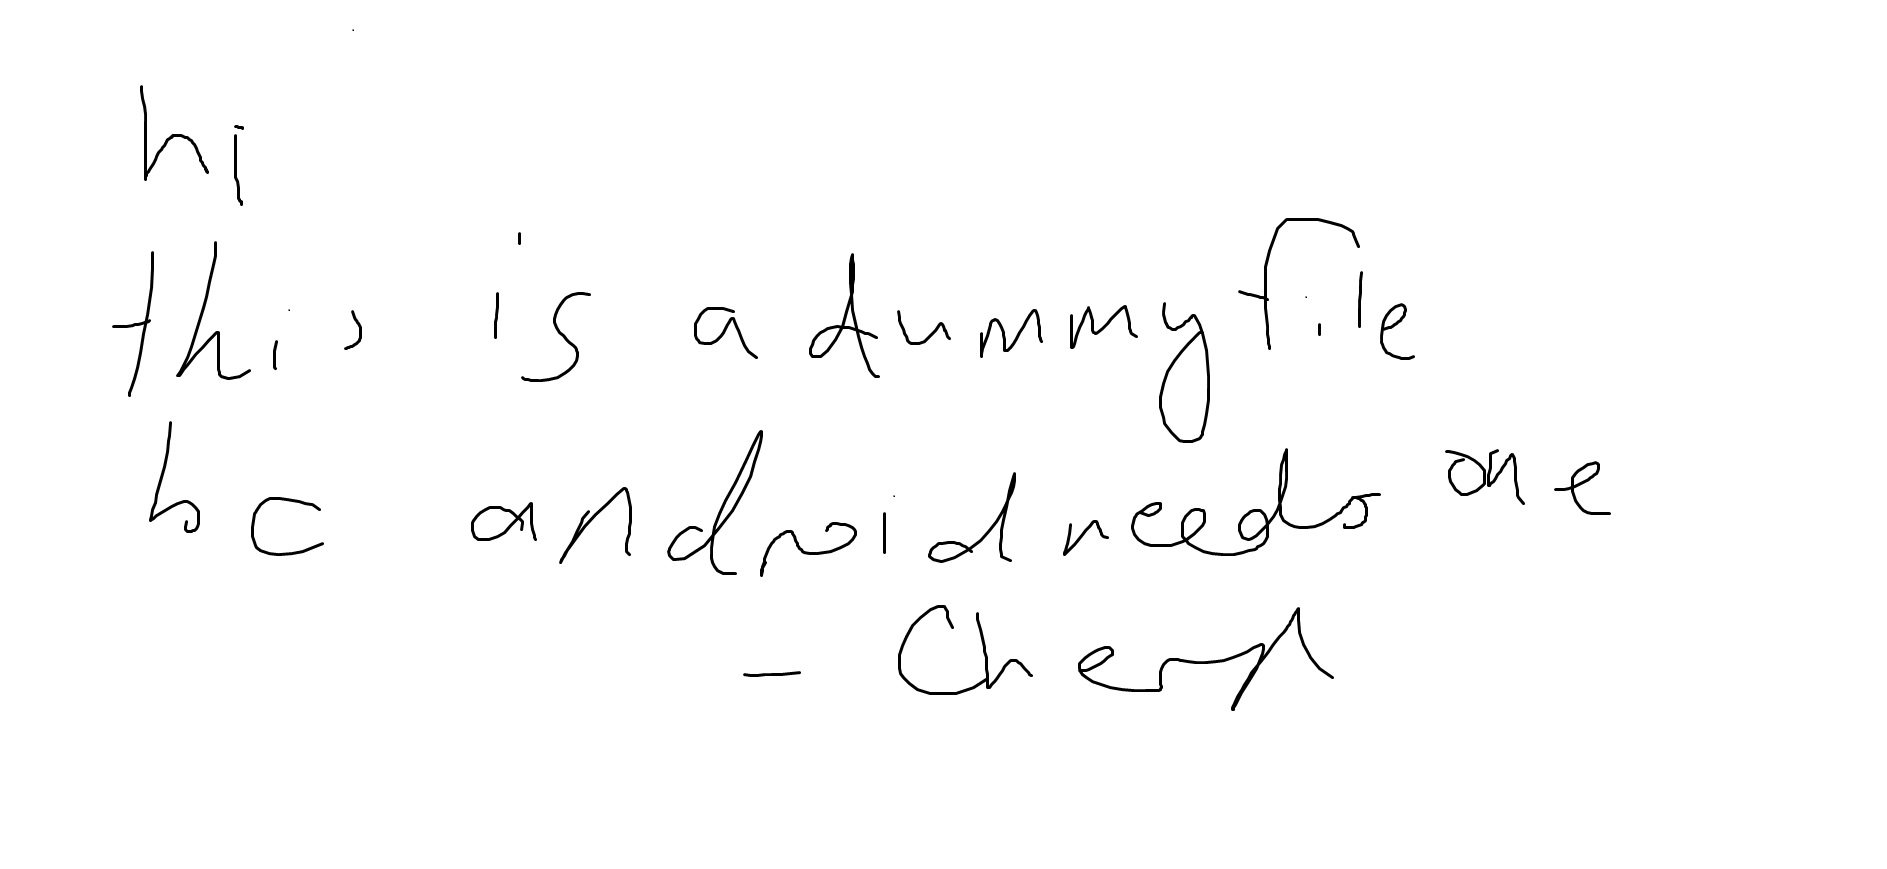 hi
this is a dummy file
bc android needs one
- Cheryl